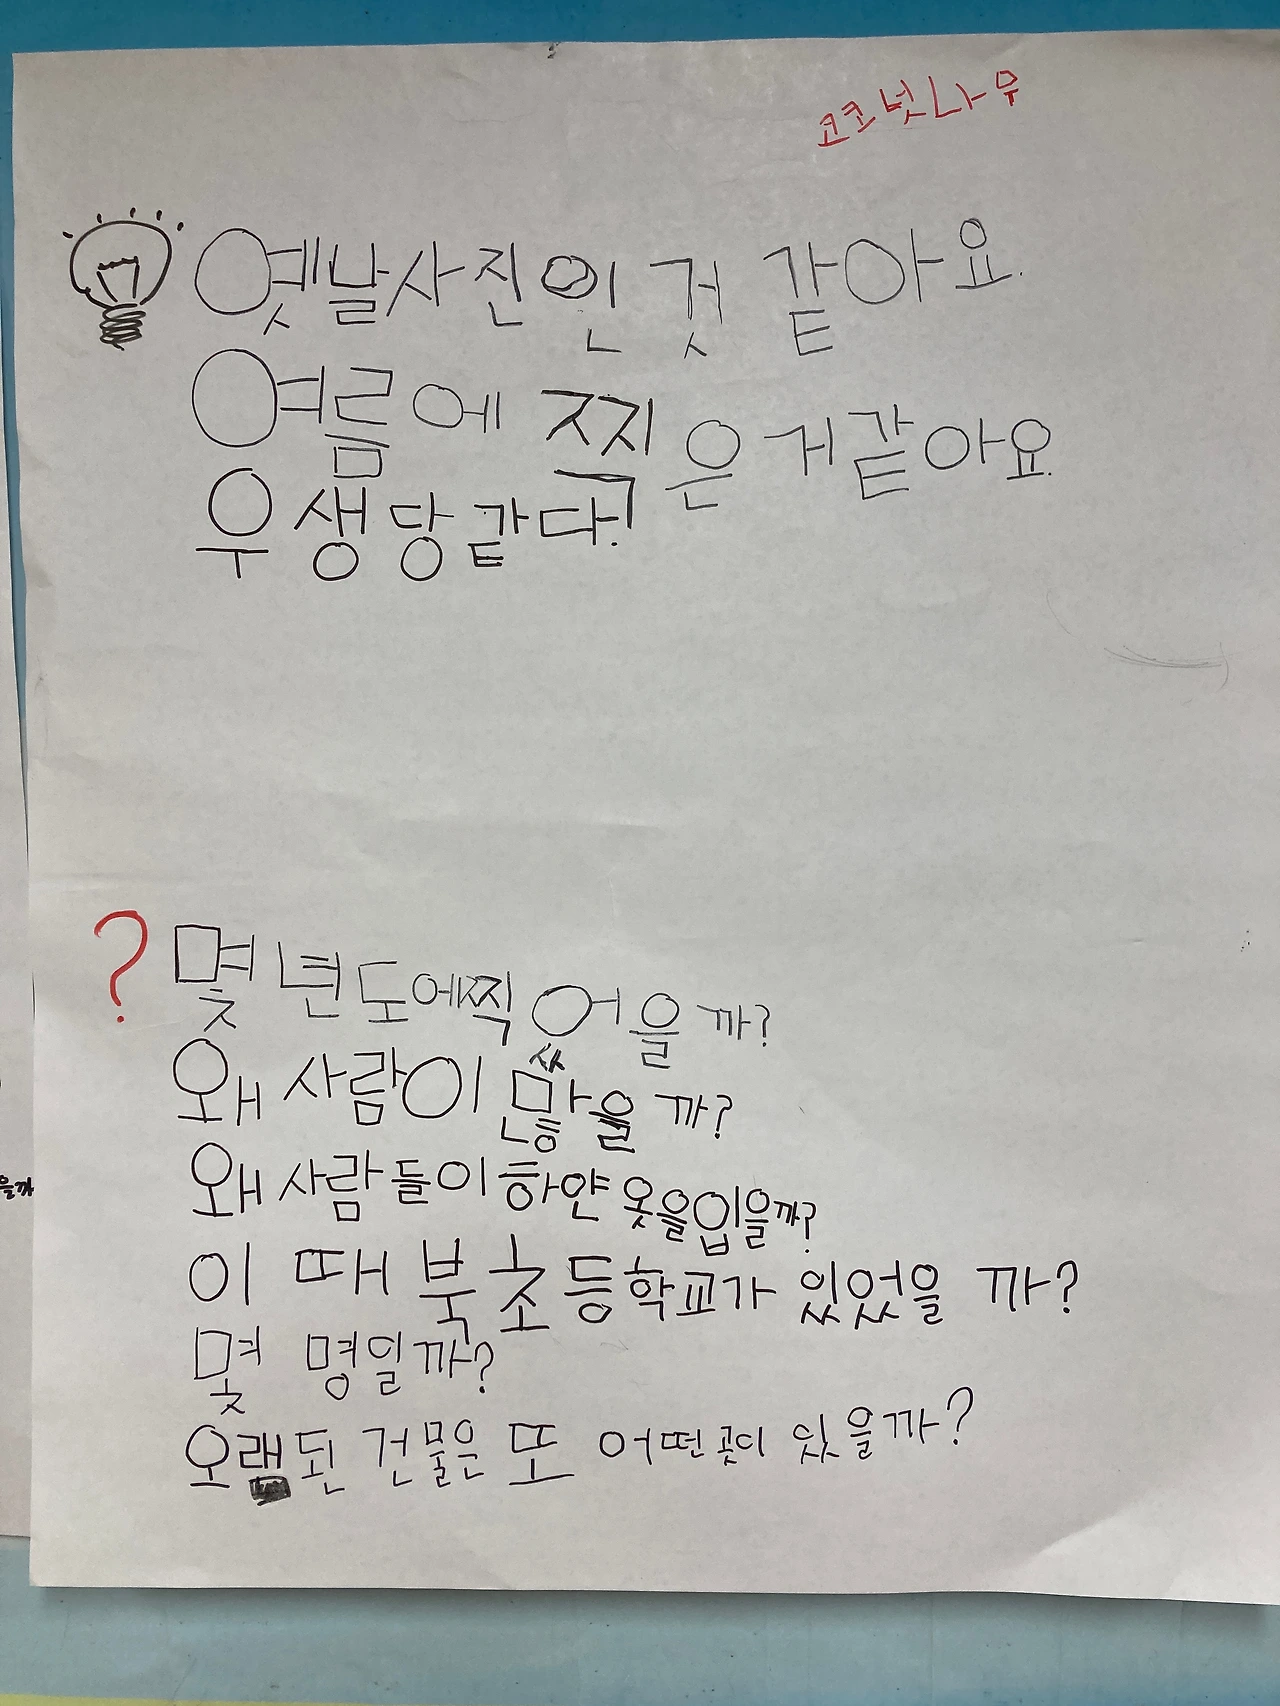 코코넛나무
옛날사진인 것 같아요.
여름에 찍은 거같아요.
우생당같다!
? 몇 년도에찍었을까?
왜 사람이 많을까?
왜 사람들이 하얀 옷을입을까?
이 때 북초등학교가 있었을까?
몇 명일까?
오래된 건물은 또 어떤곳이 있을까?
을까